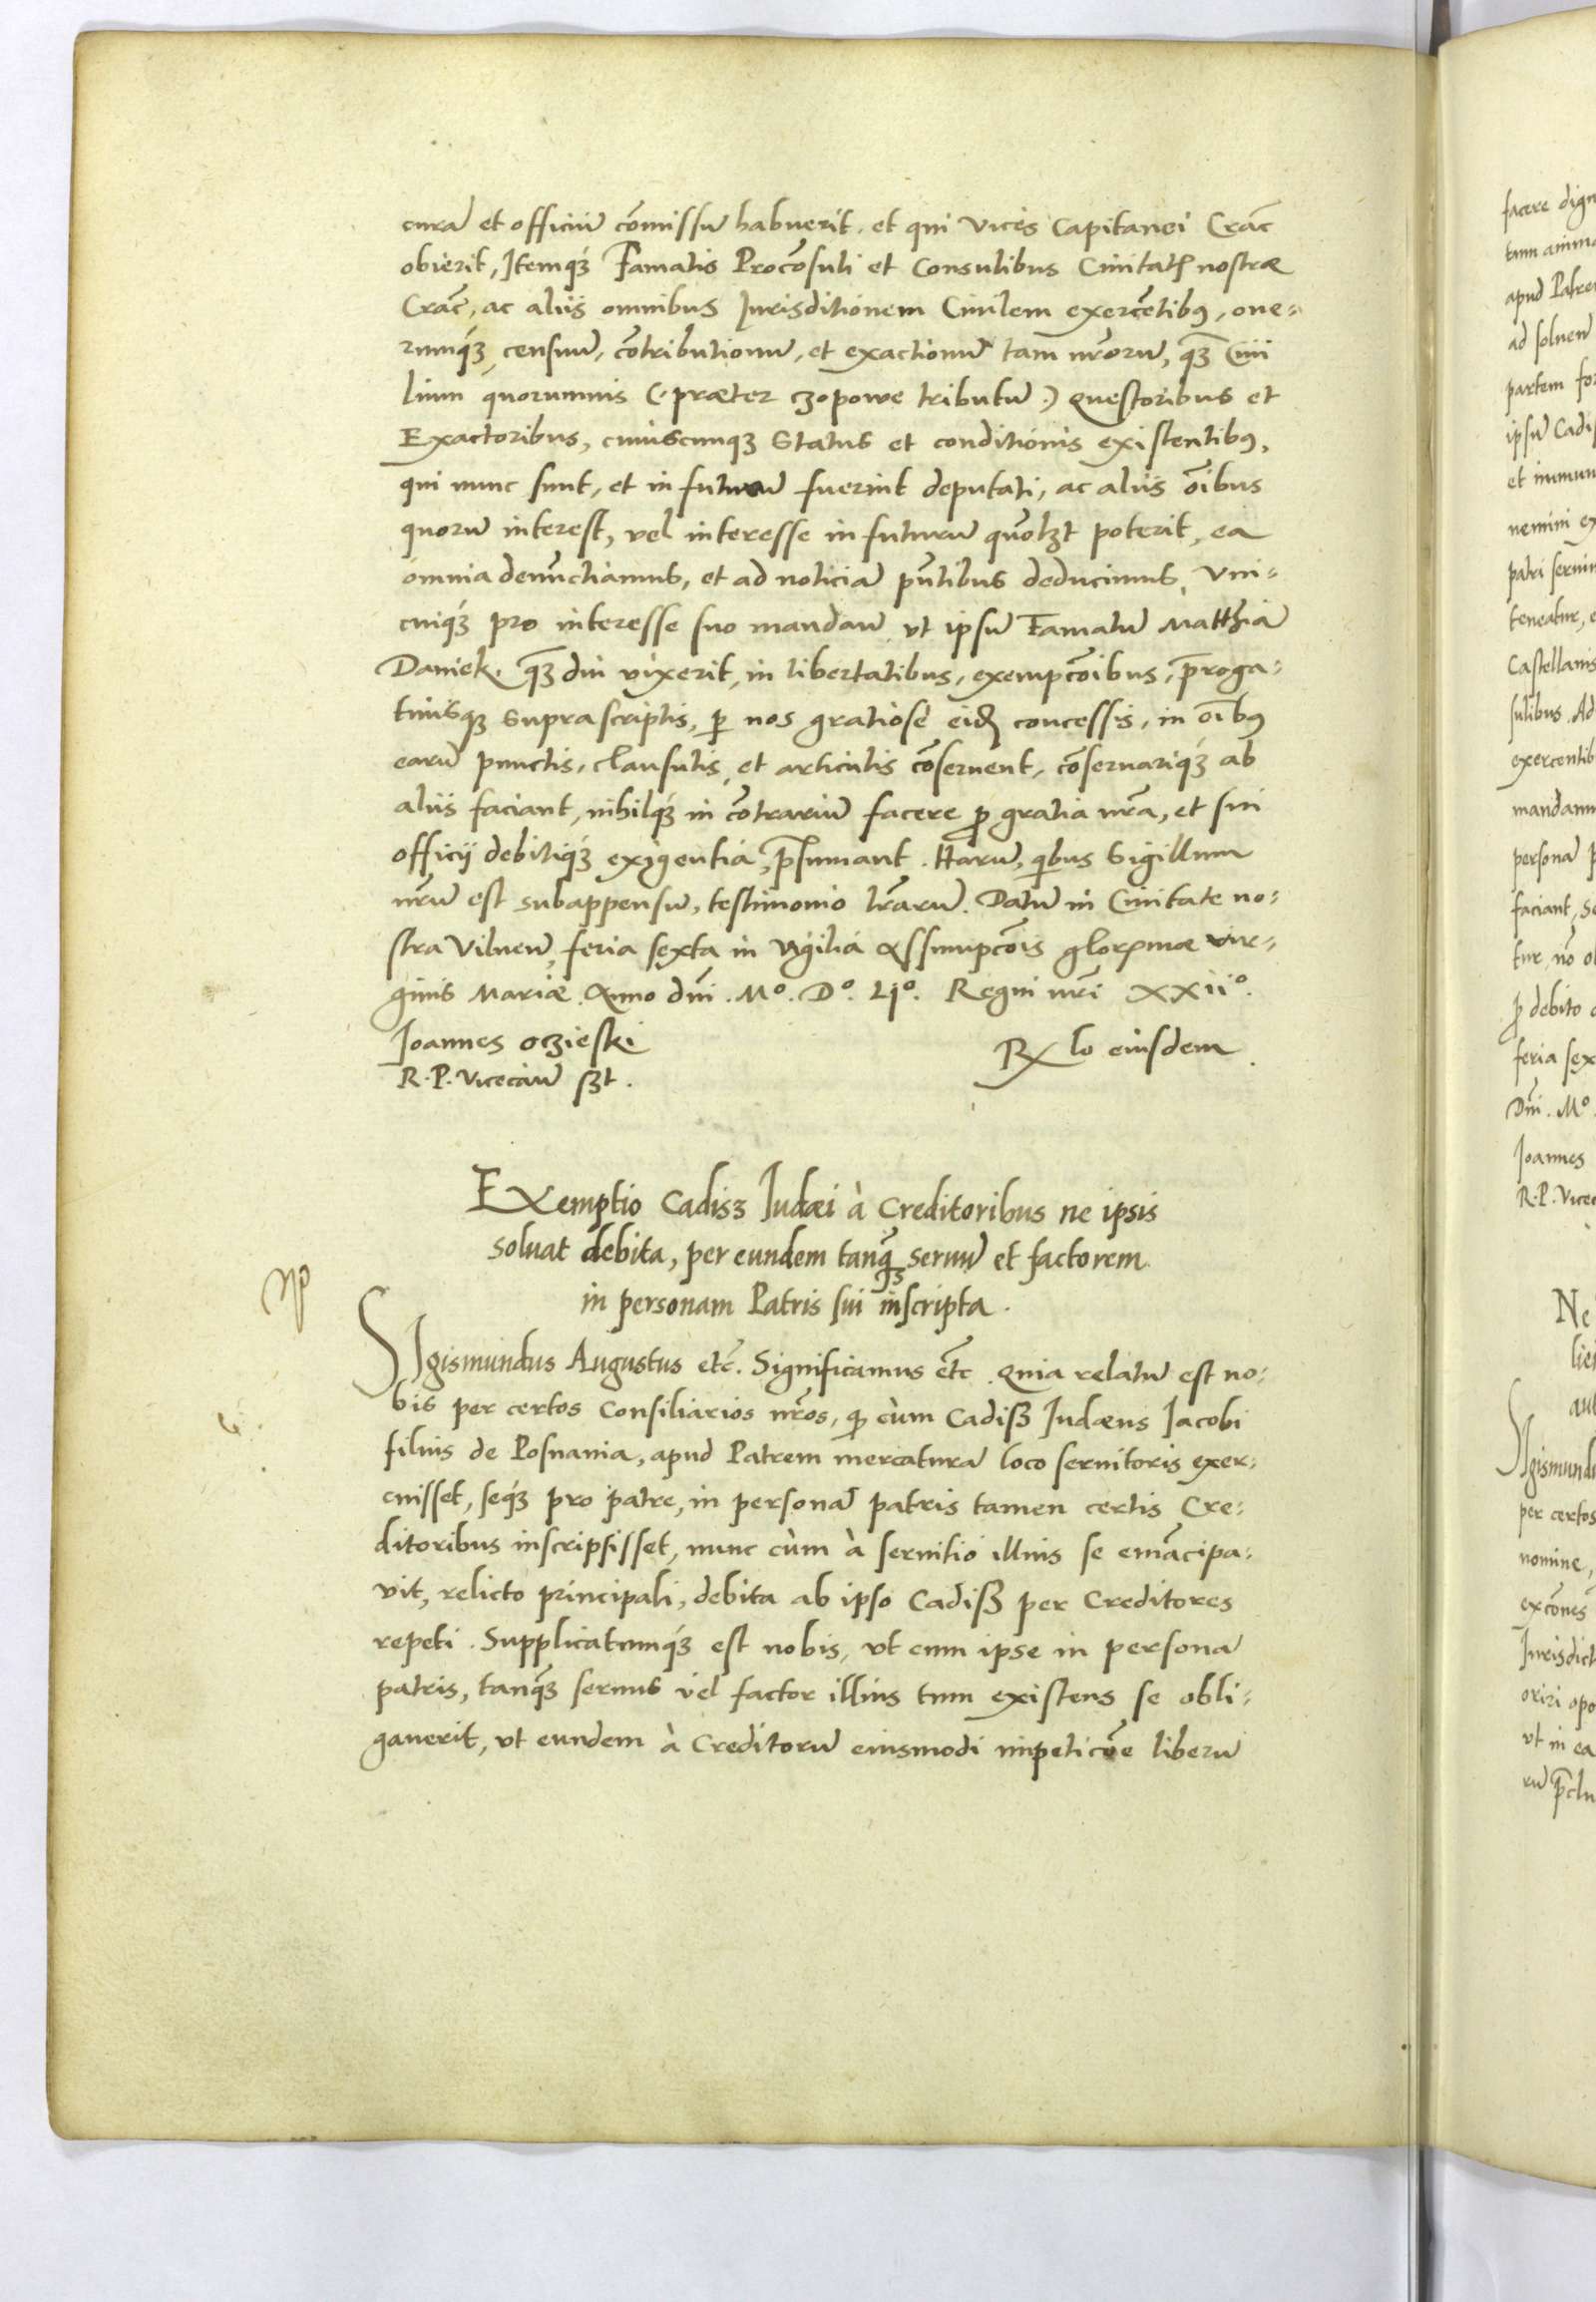 curā et officiū cōmissū habuerit, et qui vices Capitanei Crac̄
obierit, Itemq́ꝫ Famatis Procōsuli et Consulibus Ciuitatꝭ nostræ
Crac̄, ac aliis omnibus Jurisditionem Ciuilem exercētibꝰ, one-
rumq́ꝫ, censuū, cōtributionū, et exactionū tam nr̄orū, q̄ꝫ Ciui
lium quorumuis (præter czopowe tributū) Quęstoribus et
Exactoribus, cuiuscunqꝫ Status et conditionis existentibꝰ,
qui nunc sunt, et in futurū fuerint deputati, ac aliis oı̄bus
quorū interest, vel interesse in futurū quōlꝫt poterit, ea
omnia denūctiamus, et ad noticiā pn̄tibus deducimus, Vni-
cuiq́ꝫ pro interesse suo mandan̄ vt ipsū Famatū Matthiā
Daniek, q̄ꝫ diu vixerit, in libertatibus, exempcōibus, p̄roga-
tiuisqꝫ suprascriptis, ꝑ nos gratiose eid̄ concessis, in oı̄bꝰ
earū punctis, clausulis et articulis cōseruent, cōseruariq́ꝫ ab
aliis faciant, nihilq́ꝫ in cōtrariū facere ꝓ gratia nr̄a, et sui
officij debitiq́ꝫ exigentia, p̄sumant. Harū, qı̄bus Sigillum
nr̄um est subappensū, testimonio lr̄arū. Datū in Ciuitate no-
stra Vilnen̄, feria sexta in vigilia Assumpcōis glor̄mæ vir-
ginis Mariæ. Anno dn̄i. Mº. Dº. Ljº. Regni nr̄i XXIIº.
Joannes oczieski
R. P. Vicecan̄ sꝫt.
Rx̄ lo eiusdem.
Exemptio Cadisz Judæi à Creditoribus ne ipsis
soluat debita, per eundem tanq̄ꝫ seruū et factorem
in personam Patris sui inscripta.
Sigismundus Augustus etc̄. Significamus etc̄. Quia relatū est no-
bis per certos Consiliarios nr̄os, qꝫ cùm Cadisz Judæus Jacobi
filius de Posnania, apud Patrem mercaturā loco seruitoris exer-
cuisset, seq́ꝫ pro patre, in personā patris tamen certis Cre-
ditoribus inscripsisset, nunc cùm à seruitio illius se emācipa-
vit, relicto principali, debita ab ipso Cadisz per Creditores
repeti. Supplicatumq́ꝫ est nobis, vt cum ipse in personā
patris, tanq̄ꝫ seruus vel factor illius tum existens se obli-
gauerit, vt eundem à Creditorū eiusmodi impeticōe liberū
facere dign
apud Patre
ad soluen̄
partem for
ipsū Cadi
et immun
nemini ex
patri serui
teneatur, e
Castellanis
sulibus. Ad
exercentib
mandam
personā p
faciant, s
tur, nō o
ꝓ debito
feria sex
Dn̄i. Mº.
Joannes
R. P. Vicec
Ne
lie
aut
Sigismund
per certos
nomine,
Jurisdict
oriri opo
vt in ea
rū p̄clu